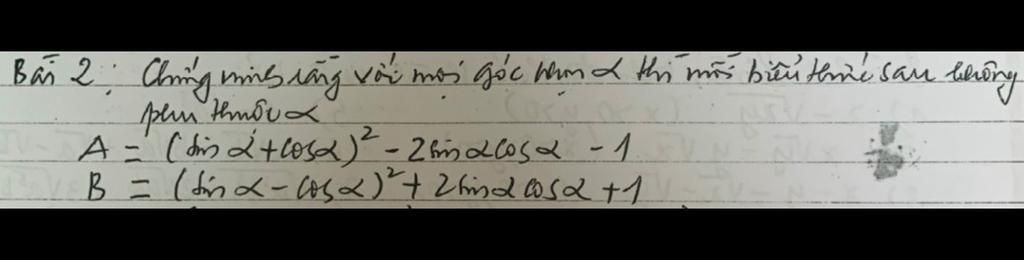 Bài 2: Chứng minh rằng với mọi góc nhọn α thì mỗi biểu thức sau không
phụ thuộc α
A = (sin α + cosα)² - 2sin αcosα - 1
B = (sin α - cosα)² + 2sinα cosα + 1